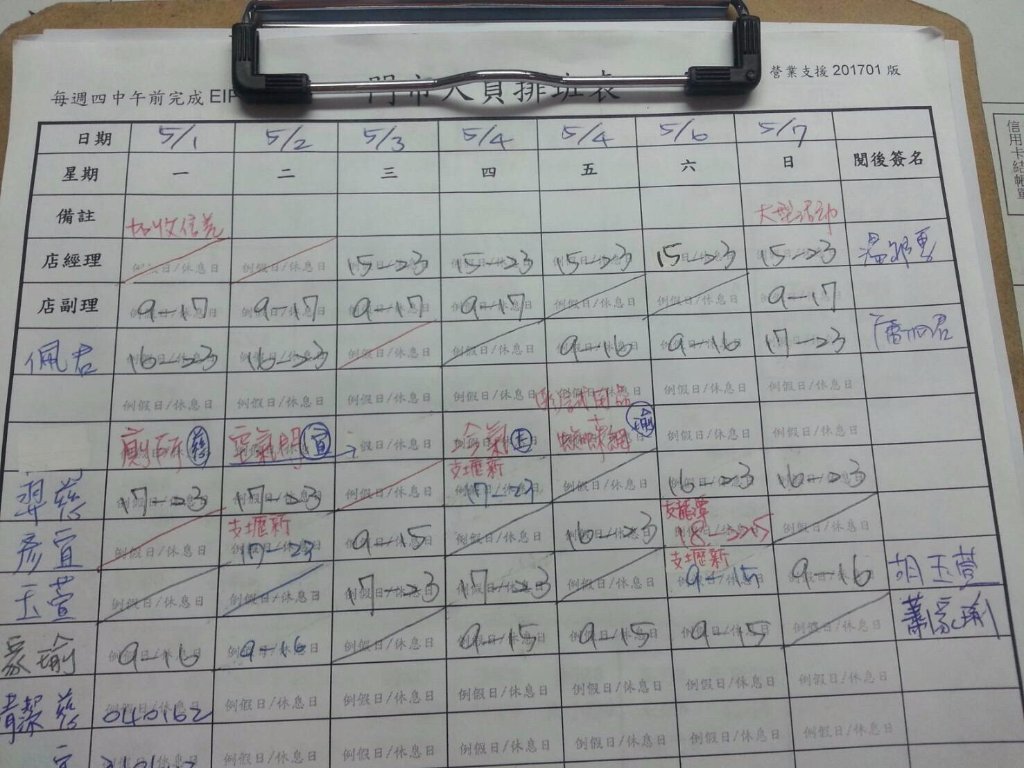 營業支援 201701 版
每週四中午前完成 EIP
門市人員排班表
日期 5/1 5/2 5/3 5/4 5/4 5/6 5/7
星期 一 二 三 四 五 六 日 閱後簽名
備註 大型活動
店經理 例假日/休息日 例假日/休息日 15-23 15-23 15-23 15-23 15-23
店副理 9-17 9-17 9-17 9-17 例假日/休息日 例假日/休息日 9-17
佩君 16-23 16-23 例假日/休息日 例假日/休息日 9-16 9-16 17-23
例假日/休息日 例假日/休息日 例假日/休息日 例假日/休息日 例假日/休息日 例假日/休息日
廁所 慈 空氣門 宜 假日/休息日 冷氣 玉 瑜 例假日/休息日 例假日/休息日
支壢新
翠慈 17-23 17-23 例假日/休息日 17-23 例假日/休息日 16-23 16-23
支壢新 支龍潭
彥宜 例假日/休息日 17-23 9-15 例假日/休息日 16-23 8-15 例假日/休息日
支壢新
玉萱 例假日/休息日 例假日/休息日 17-23 17-23 例假日/休息日 9-15 9-16 胡玉萱
家瑜 9-16 9-16 例假日/休息日 9-15 9-15 9-15 例假日/休息日 蕭家瑜
清潔 慈 040162 例假日/休息日 例假日/休息日 例假日/休息日 例假日/休息日 例假日/休息日 例假日/休息日
宜 例假日/休息日 例假日/休息日 例假日/休息日 例假日/休息日 例假日/休息日 例假日/休息日
信用卡結帳單